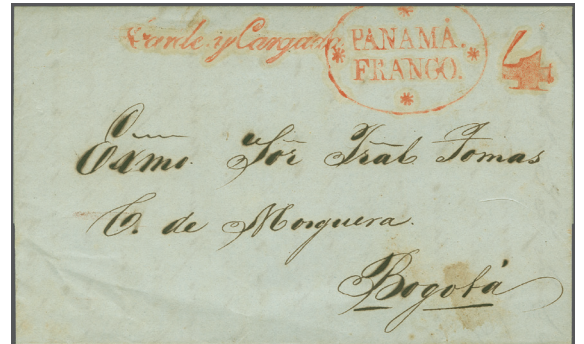 Tarde y Cargada
PANAMÁ.
FRANCO.
4
Exmo. Sõr Jral Tomas
C. de Mosquera.
Bogotá